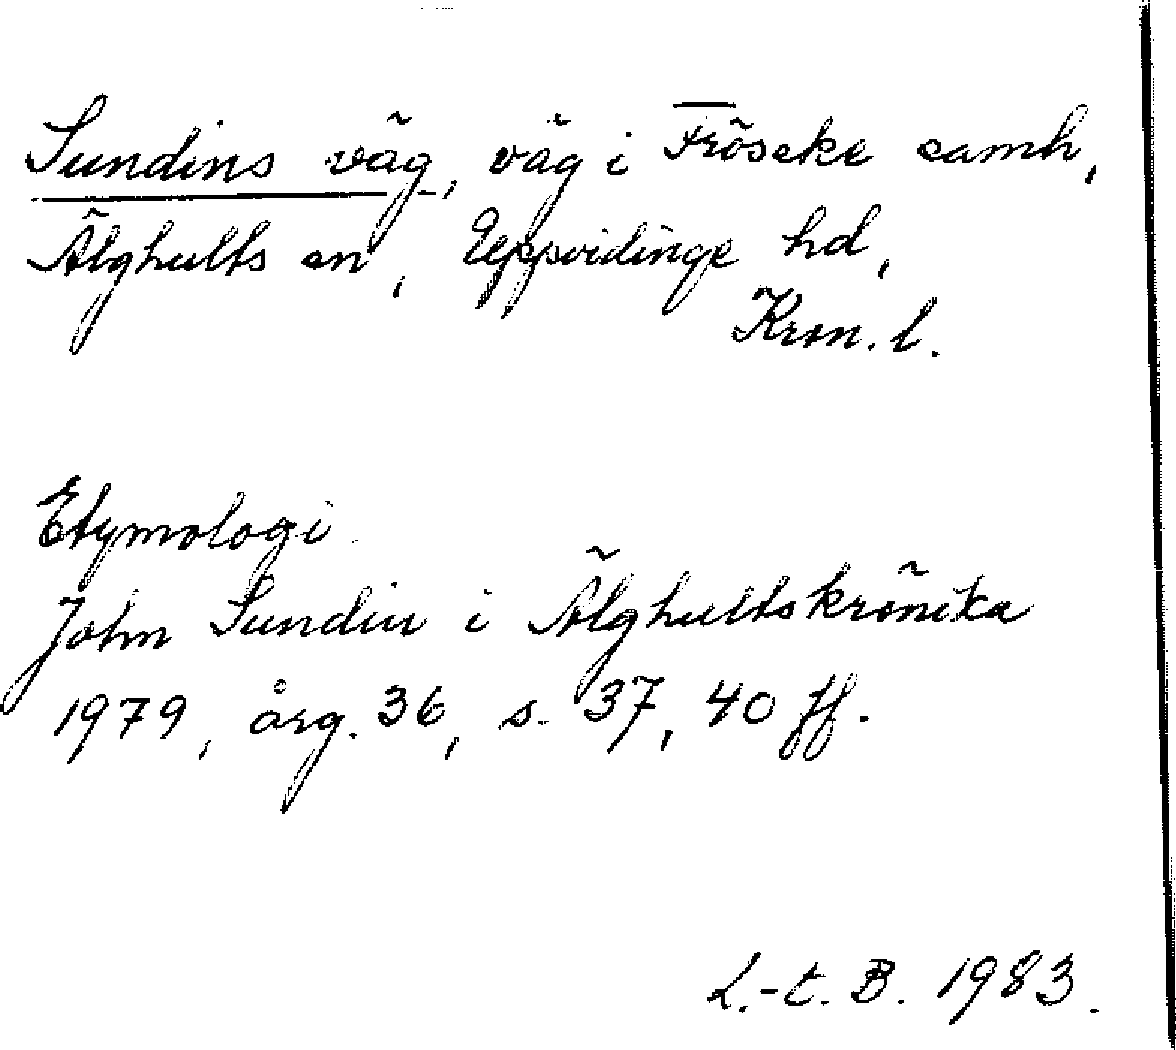 Sundins väg, väg i Fröseke samh,
Älghults sn, Uppvidinge hd,
Kron. l.
Etymologi
John Sundin i Älghultskrönika
1979, årg. 36, s. 37, 40 ff.
L.-E. B. 1983.